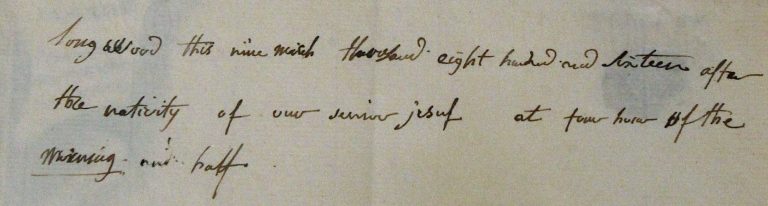 longwood this nine mich thousand eight hundred and sixteen after
the nativity of our senior jesus at four hour of the
morning and half